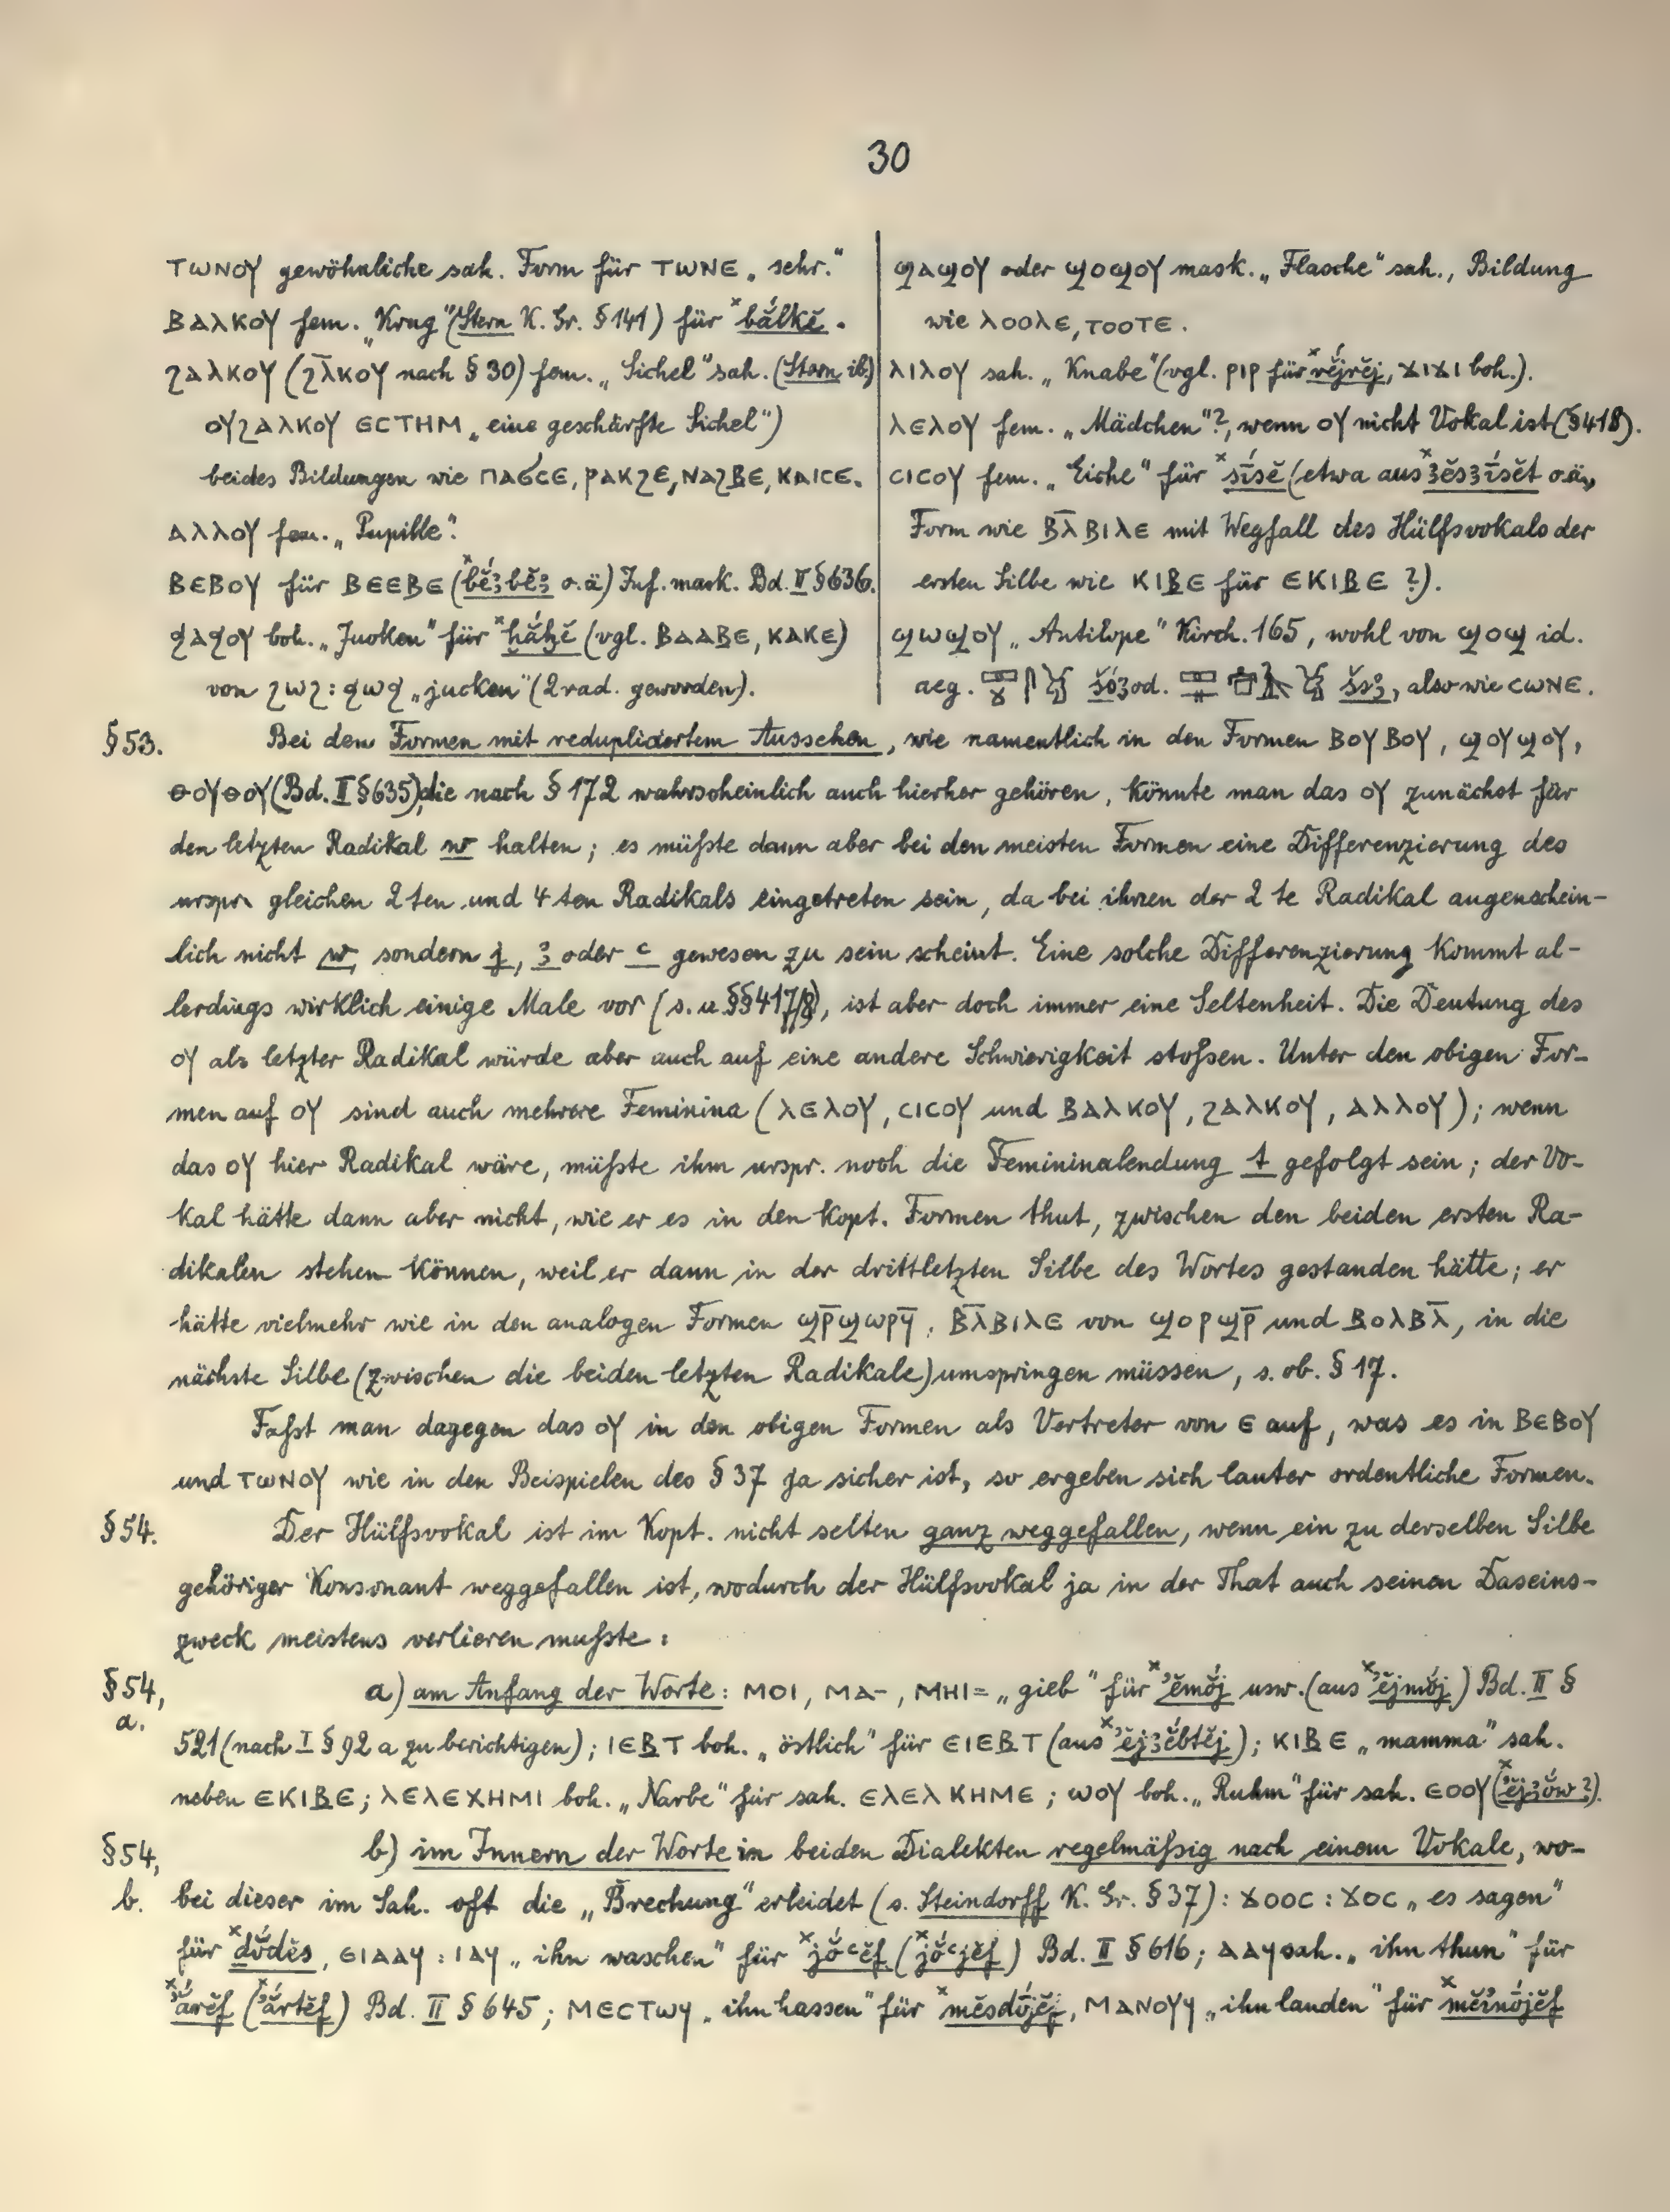 30
ⲧⲱⲛⲟⲩ gewöhnliche sah. Form für ⲧⲱⲛⲉ „sehr.“
ⲃⲁⲗⲕⲟⲩ fem. „Krug“ (Stern K. Gr. § 141) für ˣbắlkĕ.
ϩⲁⲗⲕⲟⲩ (ϩⲗ̄ⲕⲟⲩ nach § 30) fem. „Sichel“ sah. (Stern ib.)
ⲟⲩϩⲁⲗⲕⲟⲩ ⲉⲥⲧⲏⲙ „eine geschärfte Sichel“)
beides Bildungen wie ⲡⲁϭⲥⲉ, ⲣⲁⲕϩⲉ, ⲛⲁϩⲃⲉ, ⲕⲁⲓⲥⲉ.
ⲁⲗⲗⲟⲩ fem. „Pupille“.
ⲃⲉⲃⲟⲩ für ⲃⲉⲉⲃⲉ (ˣbĕ́ꜣbĕꜣ o.ä) Inf. mask. Bd. II § 636.
ϥⲁϥⲟⲩ boh. „Jucken“ für ˣḫắḫĕ (vgl. ⲃⲁⲁⲃⲉ, ⲕⲁⲕⲉ)
von ϩⲱϩ : ϥⲱϥ „jucken“ (2 rad. geworden).
ϣⲁϣⲟⲩ oder ϣⲟϣⲟⲩ mask. „Flasche“ sah., Bildung
wie ⲗⲟⲟⲗⲉ, ⲧⲟⲟⲧⲉ.
ⲗⲓⲗⲟⲩ sah. „Knabe“ (vgl. ⲣⲓⲣ für ˣrĕ́jrĕj, ϫⲓϫⲓ boh.).
ⲗⲉⲗⲟⲩ fem. „Mädchen“?, wenn ⲟⲩ nicht Vokal ist (§ 418).
ⲥⲓⲥⲟⲩ fem. „Eiche“ für ˣsī́sĕ (etwa aus ˣꜣĕsꜣī́sĕt o.ä.,
Form wie ⲃⲗ̄ⲃⲓⲗⲉ mit Wegfall des Hülfsvokals der
ersten Silbe wie ⲕⲓⲃⲉ für ⲉⲕⲓⲃⲉ ?).
ϣⲱϣⲟⲩ „Antilope“ Kirch. 165, wohl von ϣⲟϣ id.
aeg. šśꜣ od. šsꜣ, also wie ⲥⲱⲛⲉ.
§ 53. Bei den Formen mit redupliciertem Aussehen, wie namentlich in den Formen ⲃⲟⲩⲃⲟⲩ, ϣⲟⲩϣⲟⲩ,
ⲑⲟⲩⲑⲟⲩ (Bd. II § 635), die nach § 172 wahrscheinlich auch hierher gehören, könnte man das ⲟⲩ zunächst für
den letzten Radikal w halten; es müßte dann aber bei den meisten Formen eine Differenzierung des
urspr. gleichen 2 ten und 4 ten Radikals eingetreten sein, da bei ihnen der 2 te Radikal augenschein-
lich nicht w, sondern j, ꜣ oder ꜥ gewesen zu sein scheint. Eine solche Differenzierung kommt al-
lerdings wirklich einige Male vor (s. u. §§ 417/8), ist aber doch immer eine Seltenheit. Die Deutung des
ⲟⲩ als letzter Radikal würde aber auch auf eine andere Schwierigkeit stoßen. Unter den obigen For-
men auf ⲟⲩ sind auch mehrere Feminina (ⲗⲉⲗⲟⲩ, ⲥⲓⲥⲟⲩ und ⲃⲁⲗⲕⲟⲩ, ϩⲁⲗⲕⲟⲩ, ⲁⲗⲗⲟⲩ); wenn
das ⲟⲩ hier Radikal wäre, müßte ihm urspr. noch die Femininalendung t gefolgt sein; der Vo-
kal hätte dann aber nicht, wie er es in den kopt. Formen thut, zwischen den beiden ersten Ra-
dikalen stehen können, weil er dann in der drittletzten Silbe des Wortes gestanden hätte; er
hätte vielmehr wie in den analogen Formen ϣⲣ̄ϣⲱⲣϥ̄, ⲃⲗ̄ⲃⲓⲗⲉ von ϣⲟⲣϣⲣ̄ und ⲃⲟⲗⲃⲗ̄, in die
nächste Silbe (zwischen die beiden letzten Radikale) umspringen müssen, s. ob. § 17.
Faßt man dagegen das ⲟⲩ in den obigen Formen als Vertreter von ⲉ auf, was es in ⲃⲉⲃⲟⲩ
und ⲧⲱⲛⲟⲩ wie in den Beispielen des § 37 ja sicher ist, so ergeben sich lauter ordentliche Formen.
§ 54. Der Hülfsvokal ist im Kopt. nicht selten ganz weggefallen, wenn ein zu derselben Silbe
gehöriger Konsonant weggefallen ist, wodurch der Hülfsvokal ja in der That auch seinen Daseins-
zweck meistens verlieren mußte:
§ 54, a. a) am Anfang der Worte: ⲙⲟⲓ, ⲙⲁ-, ⲙⲏⲓ= „gieb“ für ˣʾĕmŏ́j usw. (aus ˣʾĕjmŏ́j) Bd. II §
521 (nach I § 92 a zu berichtigen); ⲓⲉⲃⲧ boh. „östlich“ für ⲉⲓⲉⲃⲧ (aus ˣʾĕjꜣĕ́btĕj); ⲕⲓⲃⲉ „mamma“ sah.
neben ⲉⲕⲓⲃⲉ; ⲗⲉⲗⲉⲭⲏⲙⲓ boh. „Narbe“ für sah. ⲉⲗⲉⲗⲕⲏⲙⲉ; ⲱⲟⲩ boh. „Ruhm“ für sah. ⲉⲟⲟⲩ (ˣʾĕjꜣŏ́w ?).
§ 54, b) im Innern der Worte in beiden Dialekten regelmäßig nach einem Vokale, wo-
b. bei dieser im Sah. oft die „Brechung“ erleidet (s. Steindorff K. Gr. § 37): ϫⲟⲟⲥ : ϫⲟⲥ „es sagen“
für ˣdŏ́dĕs, ⲉⲓⲁⲁϥ : ⲓⲁϥ „ihn waschen“ für ˣjŏ́ꜥĕf (ˣjŏ́ꜥjĕf) Bd. II § 616; ⲁⲁϥ sah. „ihn thun“ für
ˣʾắrĕf (ˣʾắrtĕf) Bd. II § 645; ⲙⲉⲥⲧⲱϥ „ihn hassen“ für ˣmĕsdṓjĕf, ⲙⲁⲛⲟⲩϥ „ihn landen“ für ˣmĕʾnṓjĕf